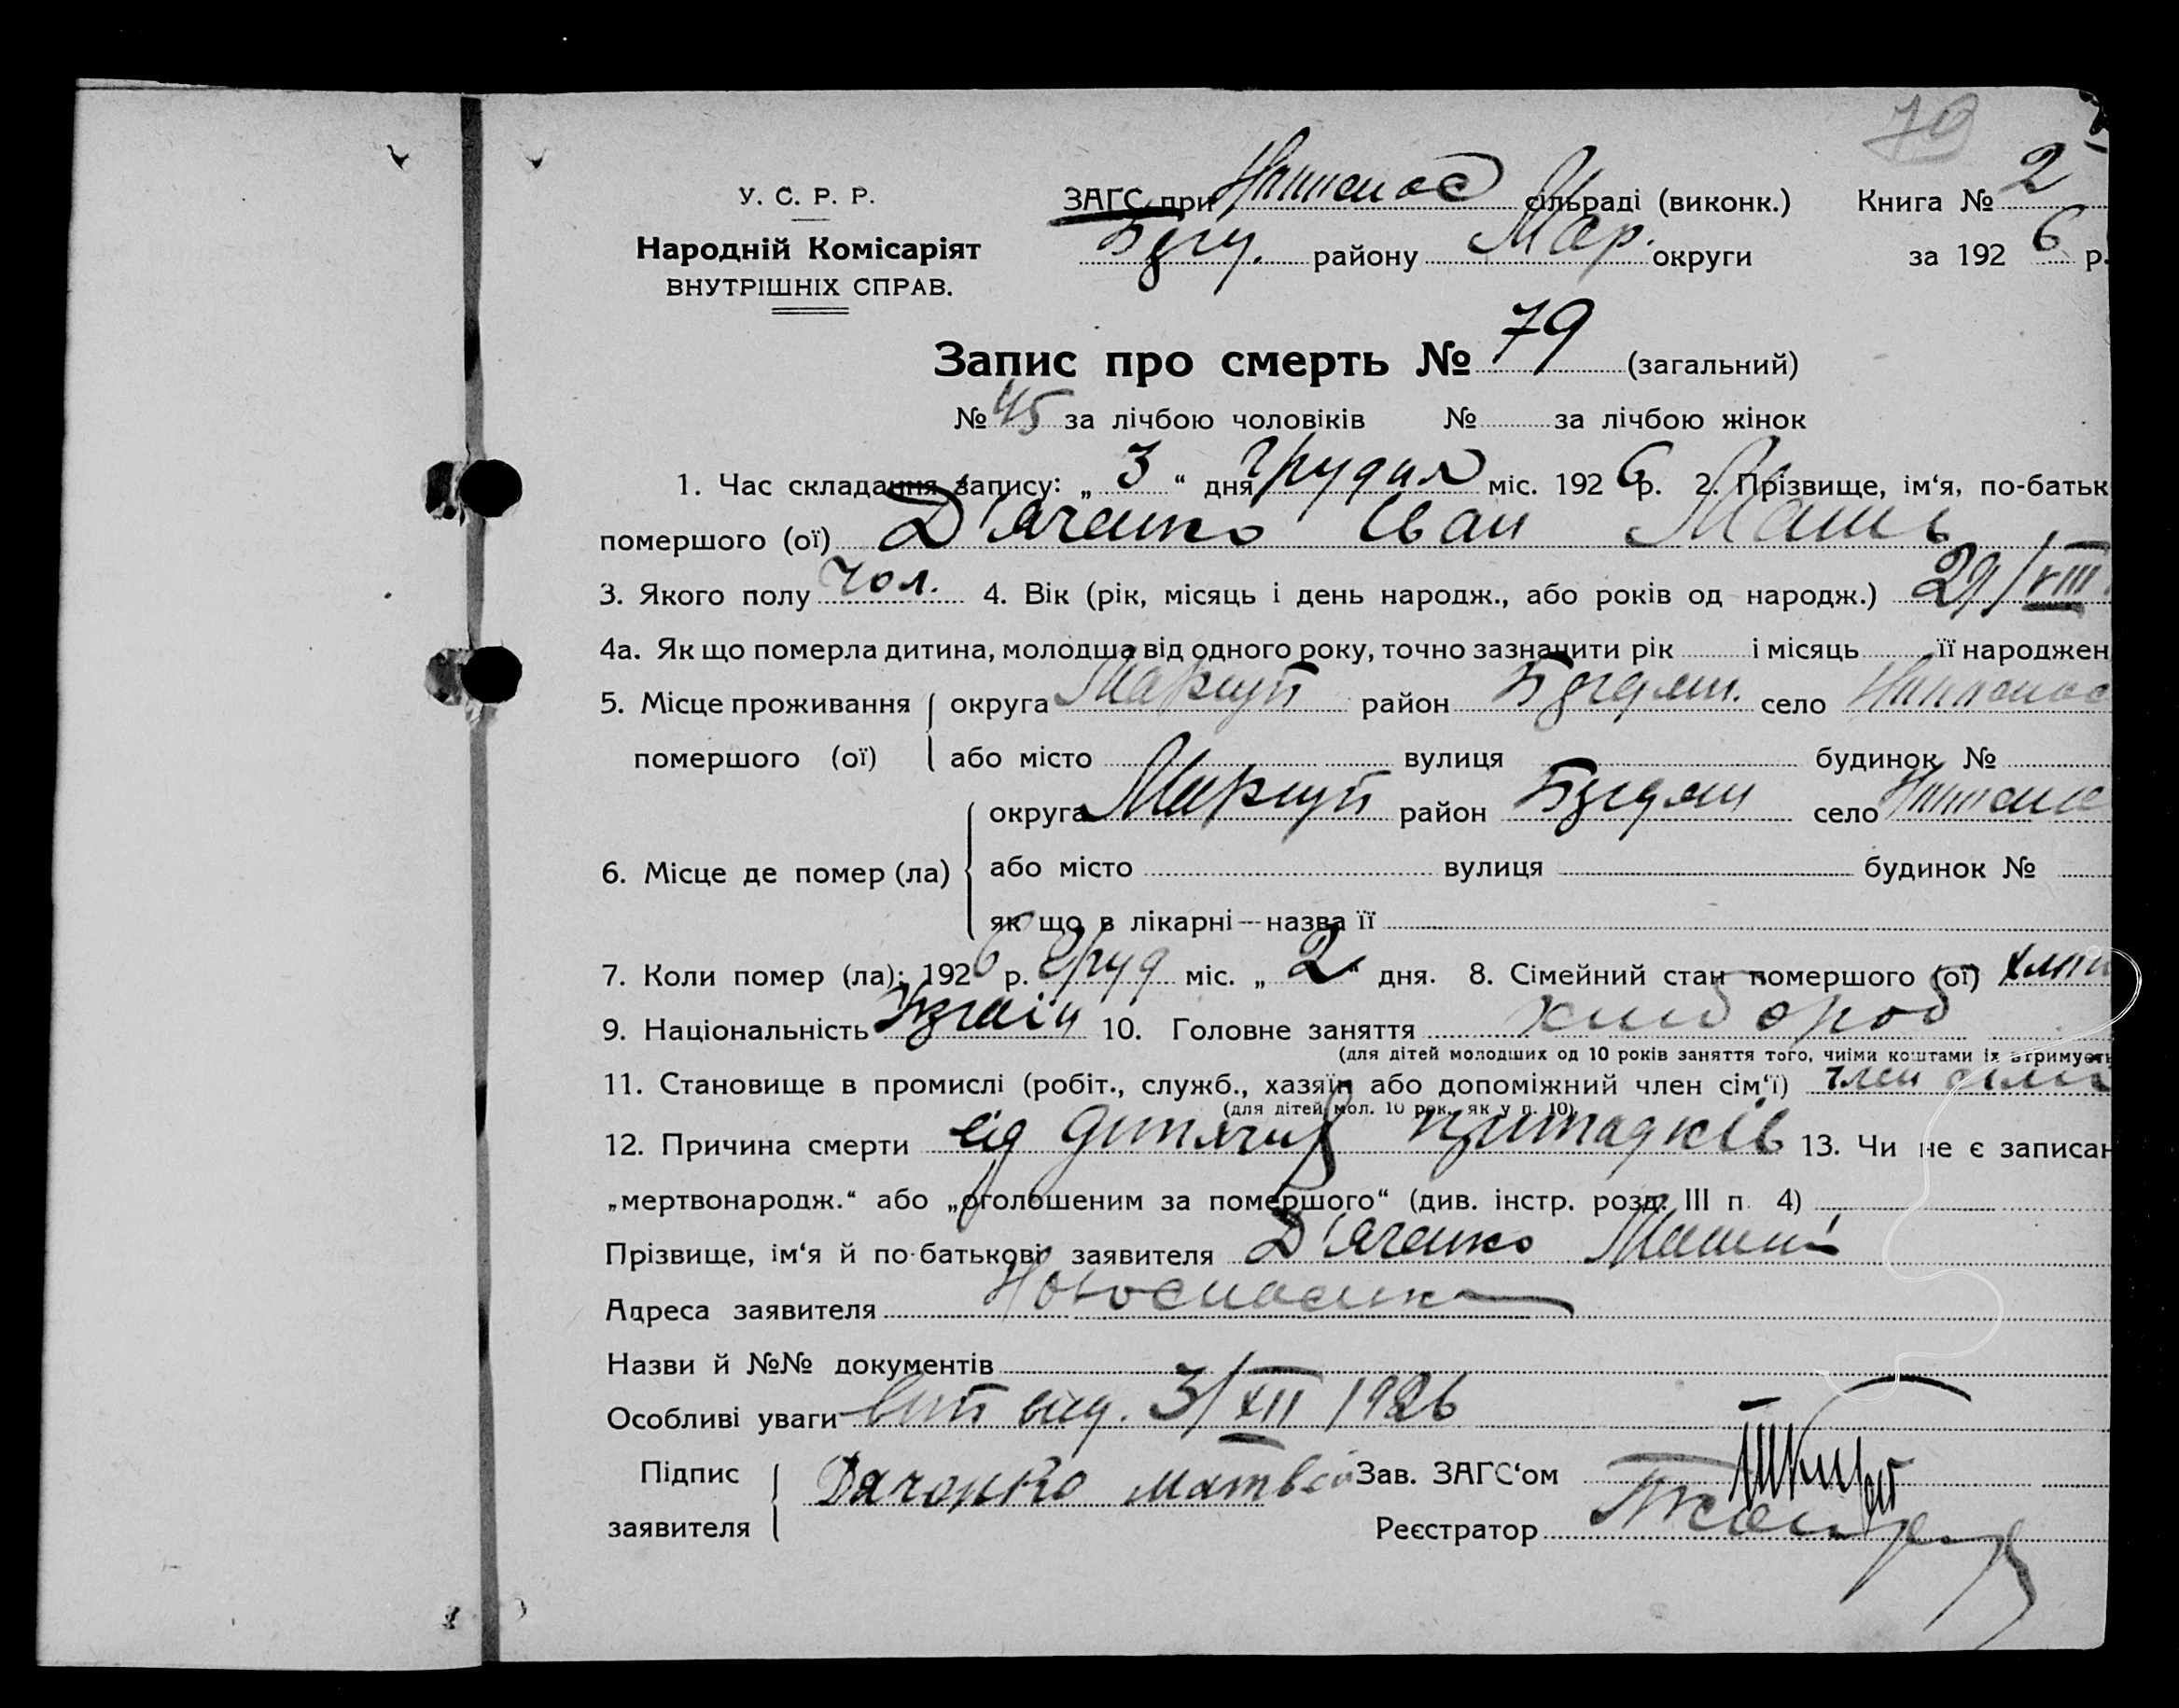 79
У. С. Р. Р.
Народній Комісаріят
ВНУТРІШНІХ СПРАВ.
ЗАГС при сільраді (виконк.) Книга № 2
району Мар. округи за 1926 р.
Запис про смерть № 79 (загальний)
№ 45 за лічбою чоловіків № за лічбою жінок
1. Час складання запису: „ 3 “ дня грудня міс. 1926 р. 2. Прізвище, ім‘я, по-батьк
помершого (ої) Д'яченко Іван
3. Якого полу чол. 4. Вік (рік, місяць і день народж., або років од народж.) 29/VIII
4а. Як що померла дитина, молодша від одного року, точно зазначити рік і місяць її народжен
5. Місце проживання округа Маріюп район село
помершого (ої) або місто вулиця будинок №
округа Маріюп район село
6. Місце де помер (ла) або місто вулиця будинок №
як що в лікарні—назва її
7. Коли помер (ла): 1926 р. Груд міс. „ 2 “ дня. 8. Сімейний стан помершого (ої)
9. Національність 10. Головне заняття хлібороб
(для дітей молодших од 10 років заняття того, чиїми коштами їх втримують
11. Становище в промислі (робіт., служб., хазяїн або допоміжний член сім‘ї) член
(для дітей мол. 10 рок., як у п. 10)
12. Причина смерти від дитячих припадків 13. Чи не є записан
„мертвонародж.“ або „оголошеним за помершого“ (див. інстр. розд. III п. 4)
Прізвище, ім‘я й по-батькові заявителя Д'яченко
Адреса заявителя Новоспаська
Назви й №№ документів
Особливі уваги вит вид. 3/XII 1926
Підпис заявителя Дяченко Матвей Зав. ЗАГС‘ом
Реєстратор